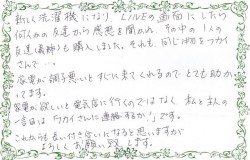 新しく洗濯機になり LINEの画面にしたら
何人かの友達から感想を聞かれ その中の1人の
友達(義姉)も購入しました。それも 同じ物をつかイ
されて…。
家電が調子悪いとすぐに来てくれるので とても助かっ
てます。
家電が欲しいと電気店に行くのではなく 私と主人の
一言は「ワカイさんに連絡するか!」です。
これからも長い付き合いになると思いますが
よろしくお願い致します。